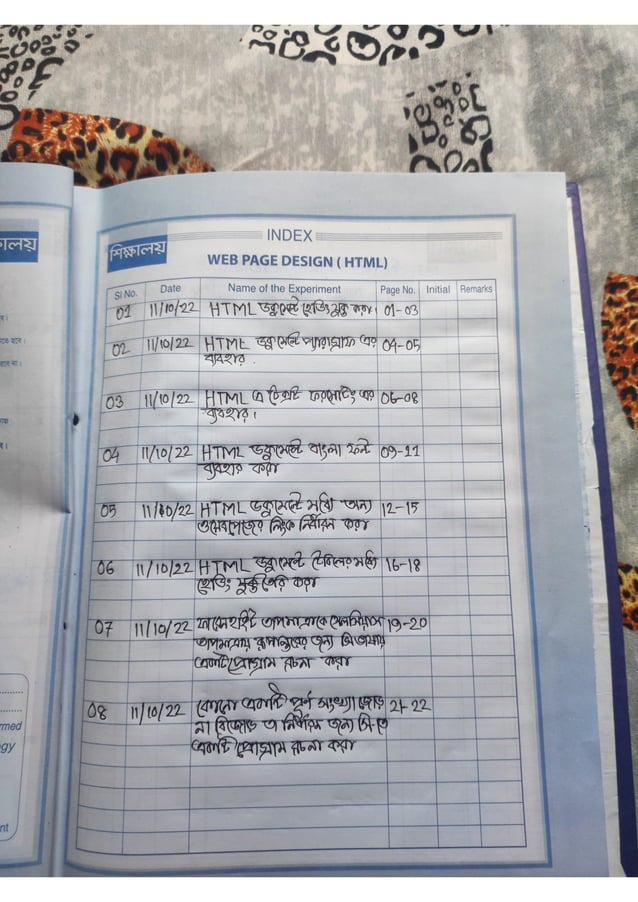 INDEX
শিক্ষালয়
WEB PAGE DESIGN ( HTML)
Sl No. Date Name of the Experiment Page No. Initial Remarks
01 11/10/22 HTML ডকুমেন্টে হেডিং যুক্ত করা। 01-03
02 11/10/22 HTML ডকুমেন্টে প্যারাগ্রাফ এর 04-05
ব্যবহার .
03 11/10/22 HTML এ টেক্সট ফরমেটিং এর 06-08
ব্যবহার।
04 11/10/22 HTML ডকুমেন্টে বাংলা ফন্ট 09-11
ব্যবহার করা
05 11/10/22 HTML ডকুমেন্টে মধ্যে অন্য 12-15
ওয়েবপেজের লিংক নির্ধারন করা
06 11/10/22 HTML ডকুমেন্টে টেবিলের মধ্যে 16-18
হেডিং যুক্ত তৈরি করা
07 11/10/22 ফারেনহাইট তাপমাত্রাকে সেলসিয়াস 19-20
তাপমাত্রায় রূপান্তরের জন্য সি ভাষায়
একটি প্রোগ্রাম রচনা করা
08 11/10/22 কোনো একটি পূর্ণ সংখ্যা জোড় 21-22
না বিজোড় তা নির্ণয়ের জন্য সি তে
একটি প্রোগ্রাম রচনা করা
rmed
gy
nt